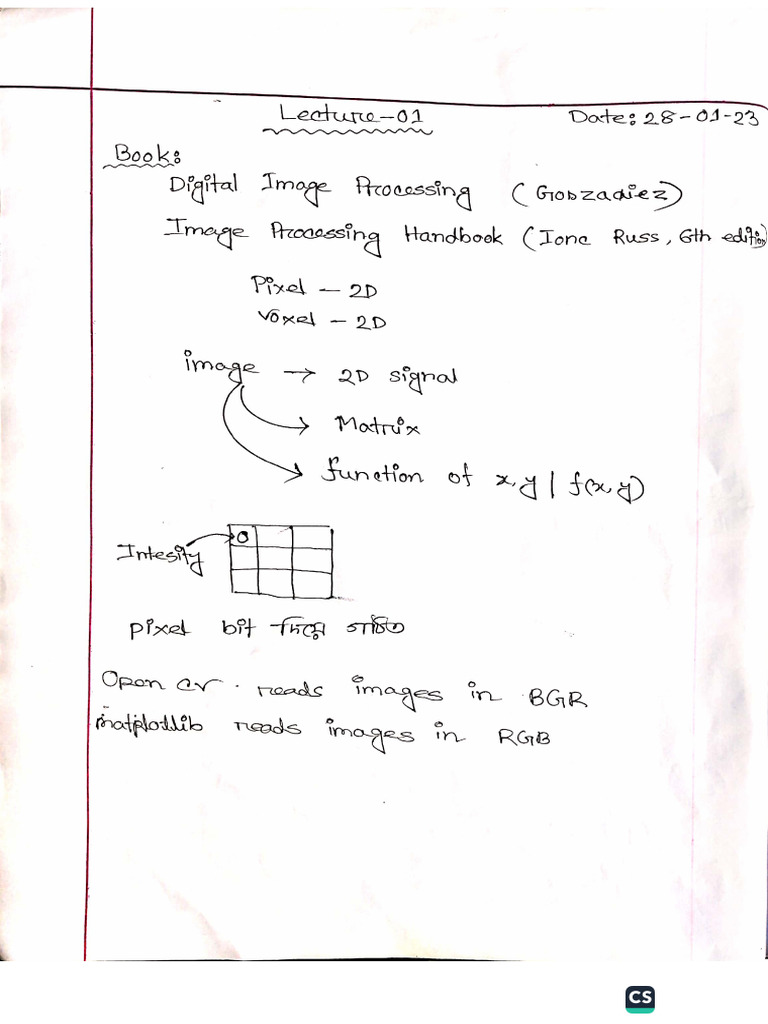 Lecture-01
Date: 28-01-23
Book:
Digital Image Processing (Gonzaalez)
Image Processing Handbook (Ionc Russ, 6th edition)
Pixel - 2D
Voxel - 2D
image → 2D signal
→ Matrix
→ function of x,y | f(x,y)
Intesity
0
pixel bit দিয়ে গঠিত
Open cv. reads images in BGR
matplotlib reads images in RGB
CS